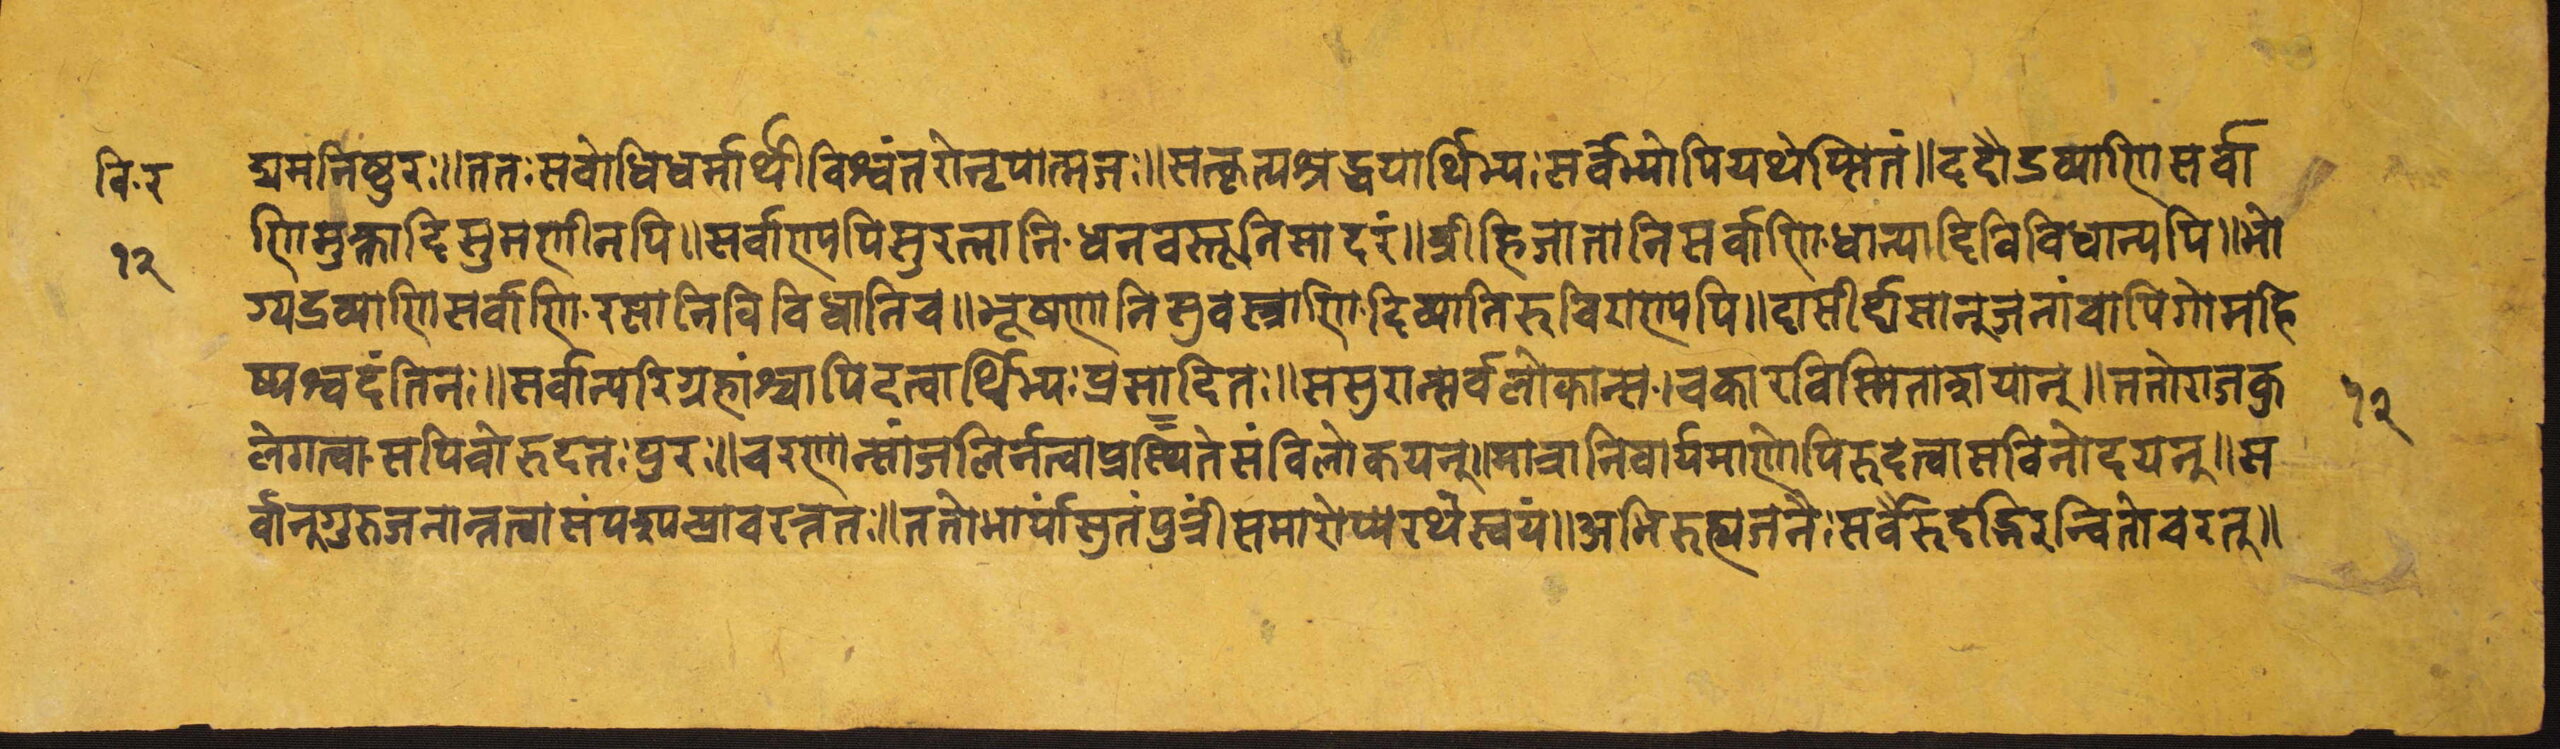 वि.र
१२
द्यमनिष्ठुरः॥ततःसवोधिधर्मार्थीविश्वंतरोनृपात्मजः॥सत्कृत्यश्रद्धयार्थिभ्यःसर्वेभ्योपियथेप्सितं॥ददौद्रव्याणिसर्वा
णिमुक्तादिसुमणीनपि॥सर्वाण्यपिसुरत्नानि·धनवस्तूनिसादरं॥व्रीहिजातानिसर्वाणि·धान्यादिविविधान्यपि॥भो
ग्यद्रव्याणिसर्वाणि·रसानिविविधानिच॥भूषणानिसुवस्त्राणि·दिव्यानिरुचिराण्यपि॥दासीर्दासानुजनांचापिगोमहि
ष्यश्वदंतिनः॥सर्वान्परिग्रहांश्चापिदत्वार्थिभ्यःप्रसादितः॥ससुरान्सर्वलोकान्स·।चकारविस्मिताशयान्॥ततोराजकु
लेगत्वा·सपित्रोरुदतःपुरः॥चरणान्सांजलिर्नत्वाप्रस्थितेसंविलोकयन्॥मात्रानिवार्यमाणोपिरुदत्वासविनोदयन्॥स
र्वान्गुरुजनान्नत्वासंपश्यन्प्राचरन्नतः॥ततोभार्यांसुतंपुत्रींसमारोप्यरथेस्वयं॥अभिरुह्यजनैःसर्वैरुदद्भिरन्वितोचरत्॥
१२